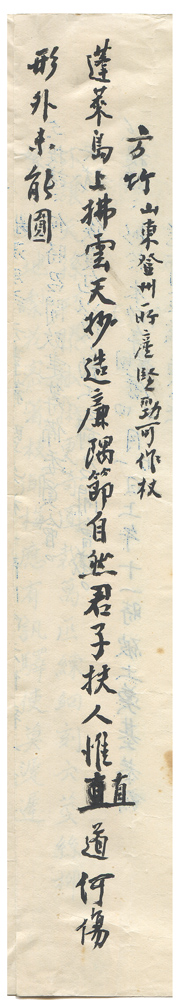 方竹山東登州所產堅勁可作杖
蓬萊島上拂雲天妙造廉隅節自然君子扶人惟直道何傷
形外未能圓